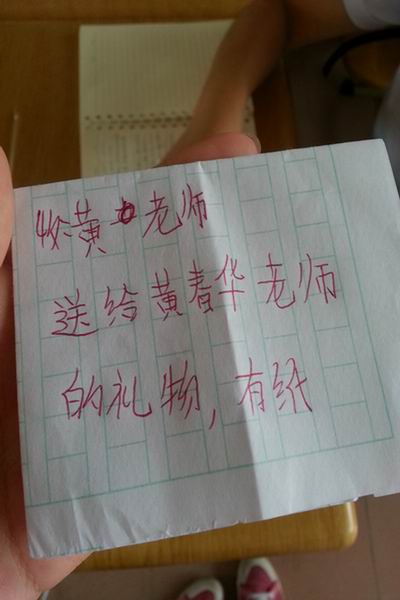 收黄老师
送给黄春华老师
的礼物,有纸